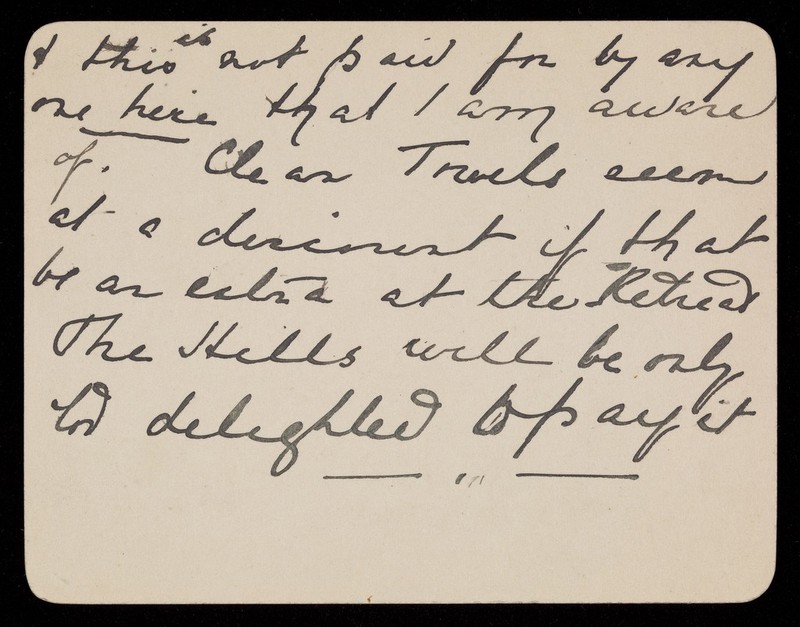 & this is not paid for by any
one here that I am aware
of. Clean Towels seem
at a discount if that
be an extra at the Retreat
The Hills will be only
too delighted to pay it